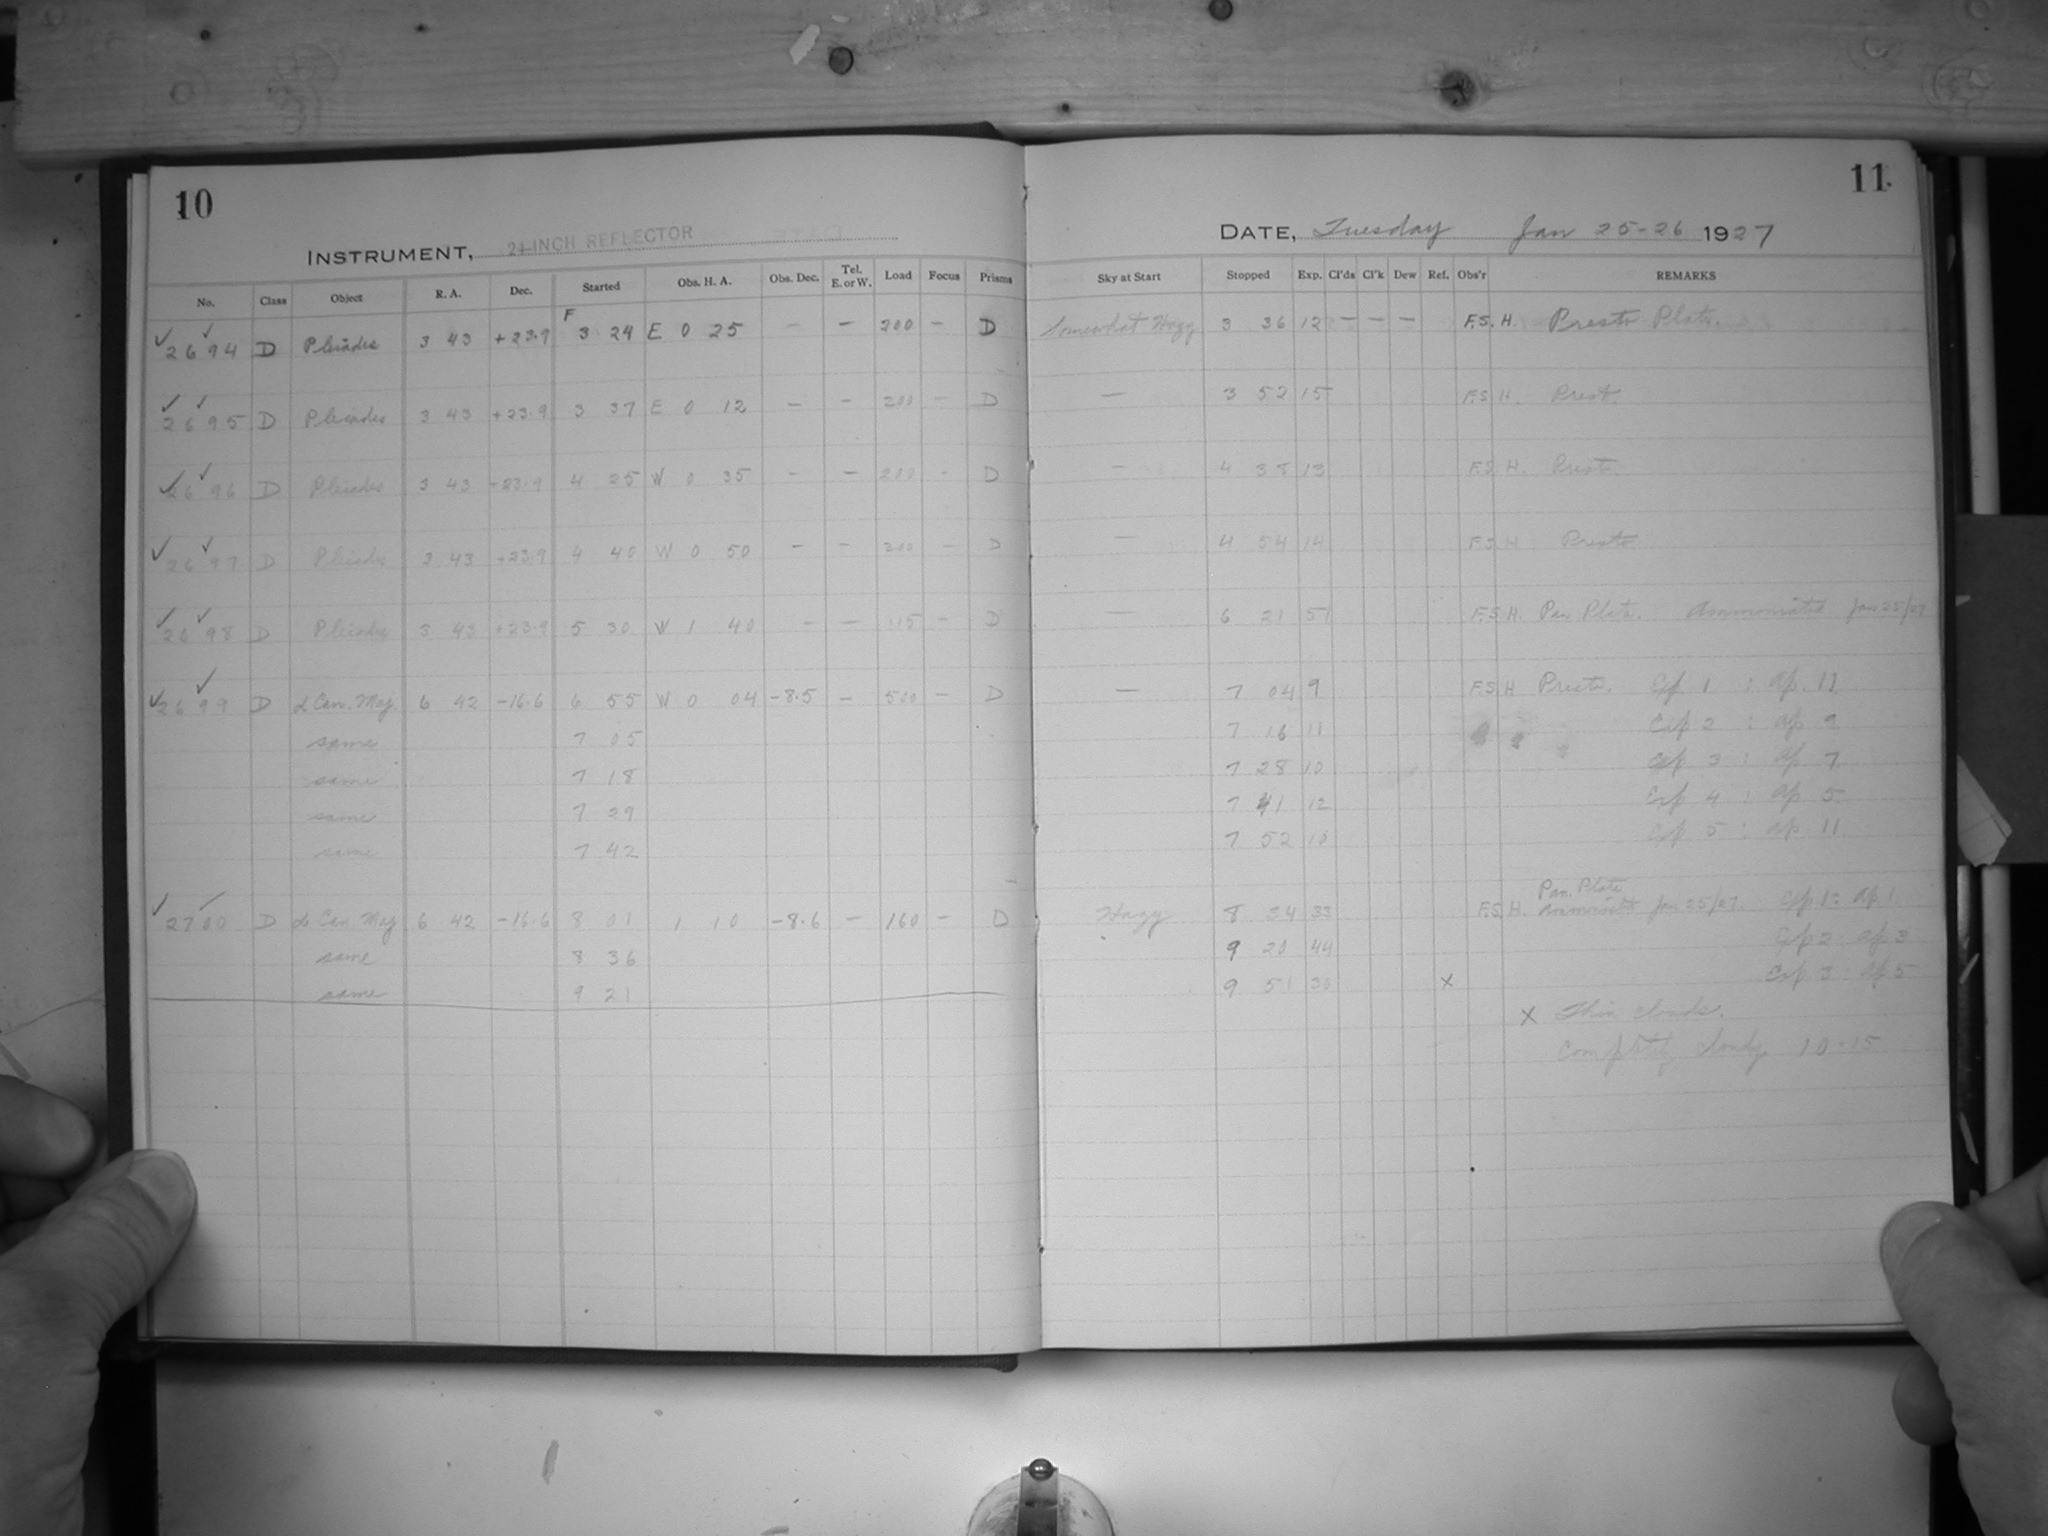 10
INSTRUMENT, 24-INCH REFLECTOR
No. Class Object R. A. Dec. Started Obs. H. A. Obs. Dec. Tel. E. or W. Load Focus Prisms
2694 D Pleiades 3 43 +23.9 F 3 24 E 0 25 — — 200 — D
2695 D Pleiades 3 43 +23.9 3 37 E 0 12 — — 200 — D
2696 D Pleiades 3 43 +23.9 4 25 W 0 35 — — 200 — D
2697 D Pleiades 3 43 +23.9 4 40 W 0 50 — — 200 — D
2698 D Pleiades 3 43 +23.9 5 30 W 1 40 — — 115 — D
2699 D α Can. Maj. 6 42 -16.6 6 55 W 0 04 -8.5 — 500 — D
same 7 05
same 7 18
same 7 29
same 7 42
2700 D α Can Maj 6 42 -16.6 8 01 1 10 -8.6 — 160 — D
same 8 36
same 9 21
11
DATE, Tuesday Jan 25-26 1927
Sky at Start Stopped Exp. Cl'ds Cl'k Dew Ref. Obs'r REMARKS
Somewhat Hazy 3 36 12 — — — F.S.H. Presto Plate.
— 3 52 15 F.S.H. Presto.
— 4 38 13 F.S.H. Presto.
— 4 54 14 F.S.H. Presto.
— 6 21 51 F.S.H. Pan Plate. Ammoniated Jan 25/27
— 7 04 9 F.S.H Presto. Exp 1 : Ap. 11
7 16 11 Exp 2 : Ap 9
7 28 10 Exp 3 : Ap 7
7 41 12 Exp 4 : Ap 5
7 52 10 Exp 5 : Ap 11
Hazy 8 34 33 F.S.H. Pan. Plate Ammoniated Jan 25/27. Exp 1: Ap 1.
9 20 44 Exp 2: Ap 3
9 51 30 x Exp 3: Ap 5
x Thin clouds.
Completely cloudy 10-15